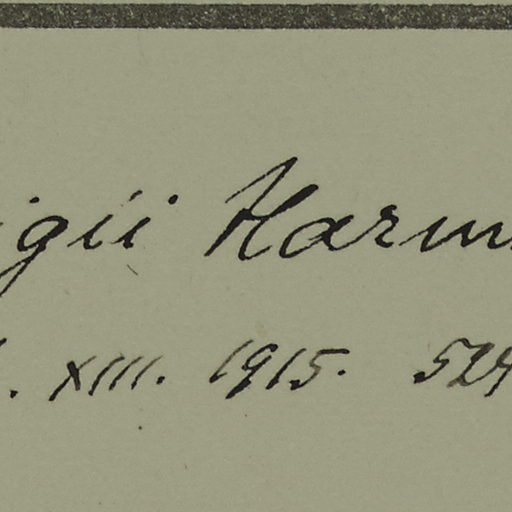 igii Harm
. XIII. 1915. 524